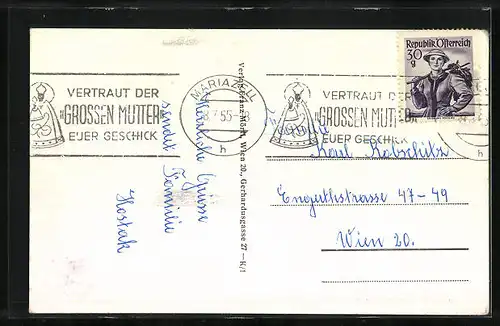 VERTRAUT DER
"GROSSEN MUTTER"
EUER GESCHICK
MARIAZELL
7.55
h
VERTRAUT DER
"GROSSEN MUTTER"
EUER GESCHICK
Republik Österreich
30
g
Herzliche Grüsse
sendet
Familie
Verlag Franz Mörtl, Wien 20., Gerhardusgasse 27 — K/1
Familie
Karl
Engerthstrasse 47-49
Wien 20.